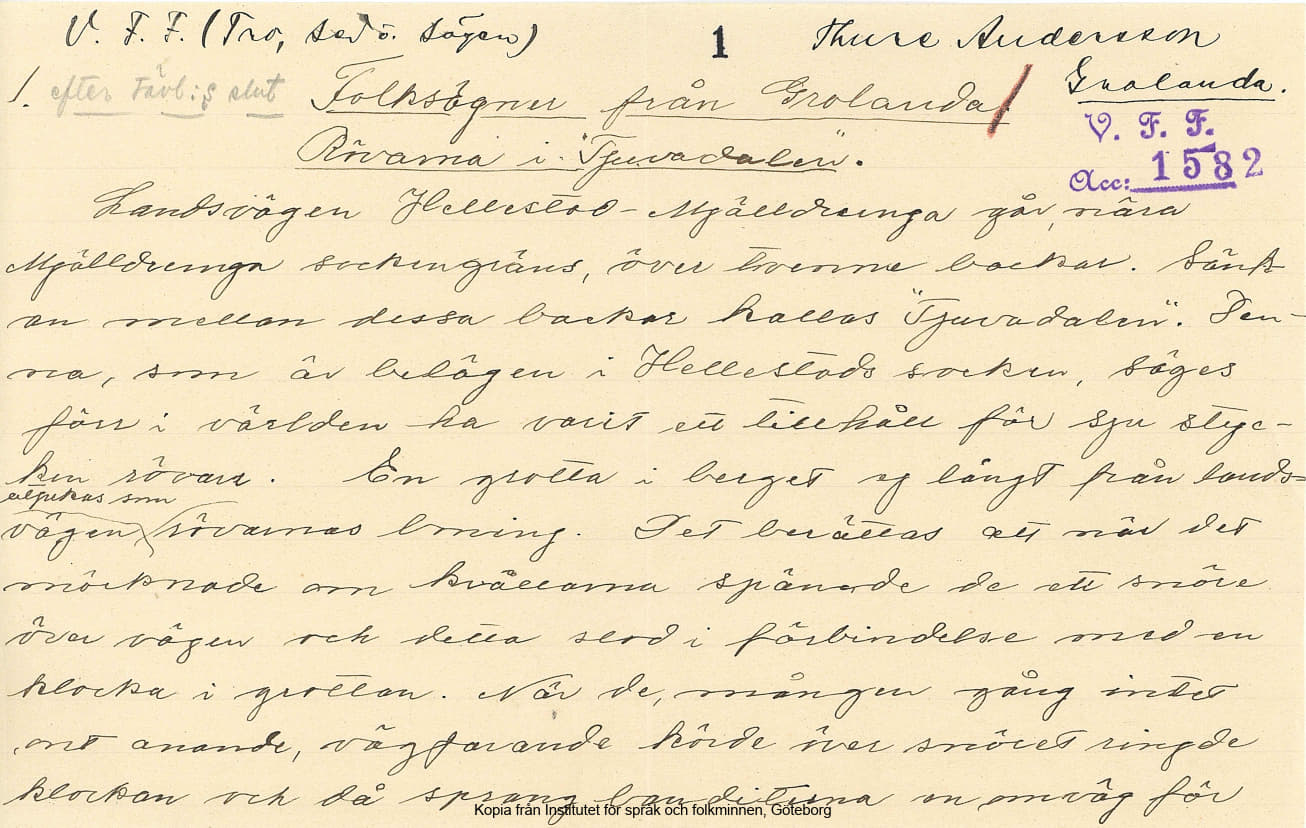 V. F. F. (Tro, sed o. sägen)
1
Thure Andersson
1. efter Tävl:s slut
Folksägner från Grolanda
Grolanda.
V. F. F.
Acc: 1582
Rövarna i "Tjuvadalen".
Landsvägen Hellestad-Mjälldrunga går, nära
Mjälldrunga sockengräns, över tvenne backar. Sänk
an mellan dessa backar kallas "Tjuvadalen". Den-
na, som är belägen i Hellestads socken, säges
förr i världen ha varit ett tillhåll för sju styc-
ken rövare. En grotta i berget ej långt från lands-
utpekas som
vägen rövarnas boning. Det berättas att när det
mörknade om kvällarna spände de ett snöre
över vägen och detta stod i förbindelse med en
klocka i grottan. När de, mången gång intet
ont anande, vägfarande körde över snöret ringde
klockan och då sprang banditerna en omväg för
Kopia från Institutet för språk och folkminnen, Göteborg